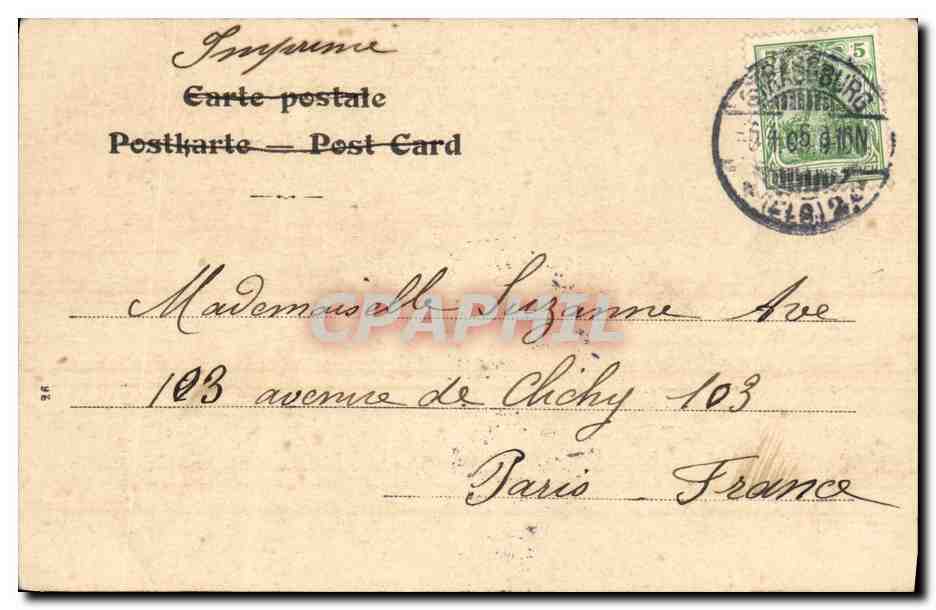 Imprime
Carte postale
Postkarte — Post Card
5
STRASSBURG
(ELS) 2.
Mademoiselle Suzanne Ave
103 avenue de Clichy 103
Paris France
CPAPHIL